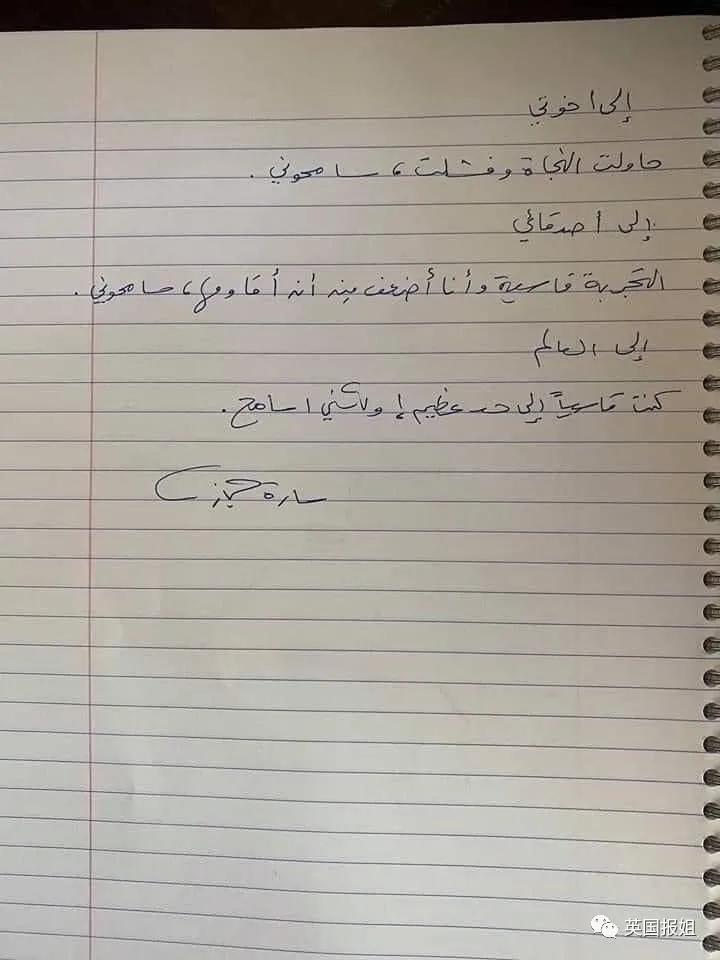 إلى اخوتي
حاولت النجاة وفشلت، سامحوني.
إلى أصدقائي
التجربة قاسية وأنا أضعف من أن أقاومها، سامحوني.
إلى العالم
كنت قاسياً إلى حد عظيم، ولكني اسامح.
سارة حجازي
英国报姐